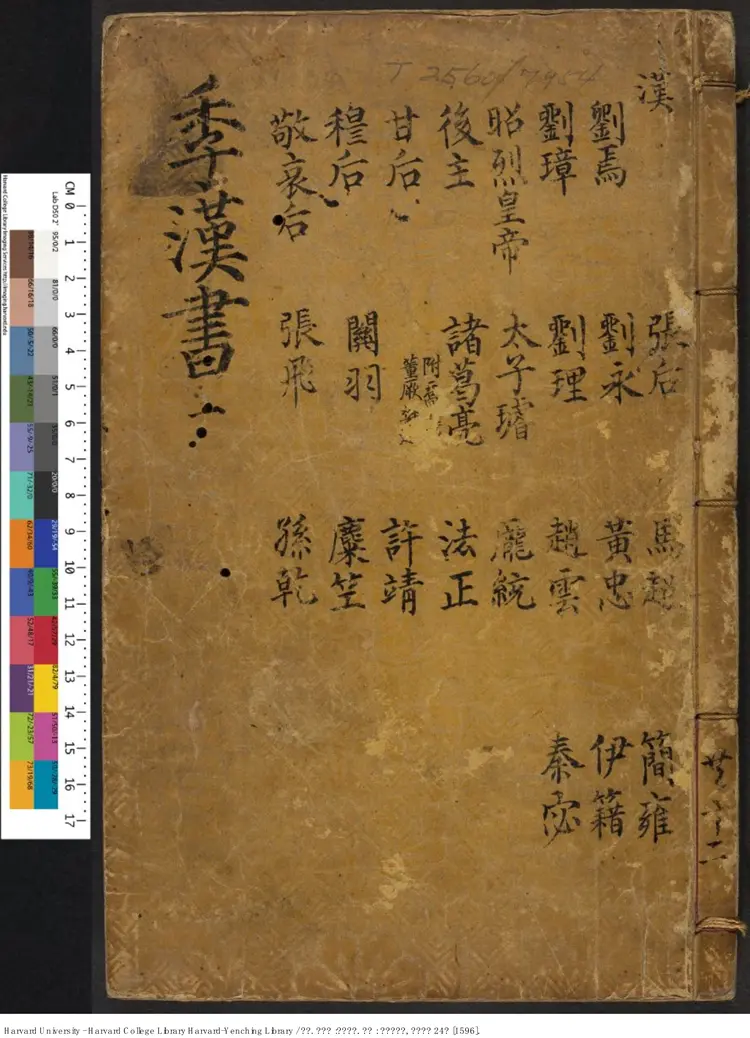 季漢書
漢
劉焉
劉璋
昭烈皇帝
後主
甘后
穆后
敬哀后
張后
劉永
劉理
太子璿
諸葛亮
附
董厥
關羽
張飛
馬超
黃忠
趙雲
龐統
法正
許靖
麋竺
孫乾
簡雍
伊籍
秦宓
共十二
T 2560/7954
CM 0 1 2 3 4 5 6 7 8 9 10 11 12 13 14 15 16 17
Harvard College Library Imaging Services
Harvard University - Harvard College Library Harvard-Yenching Library / ??. ??? :????. ?? : ?????, ???? 24? [1596].